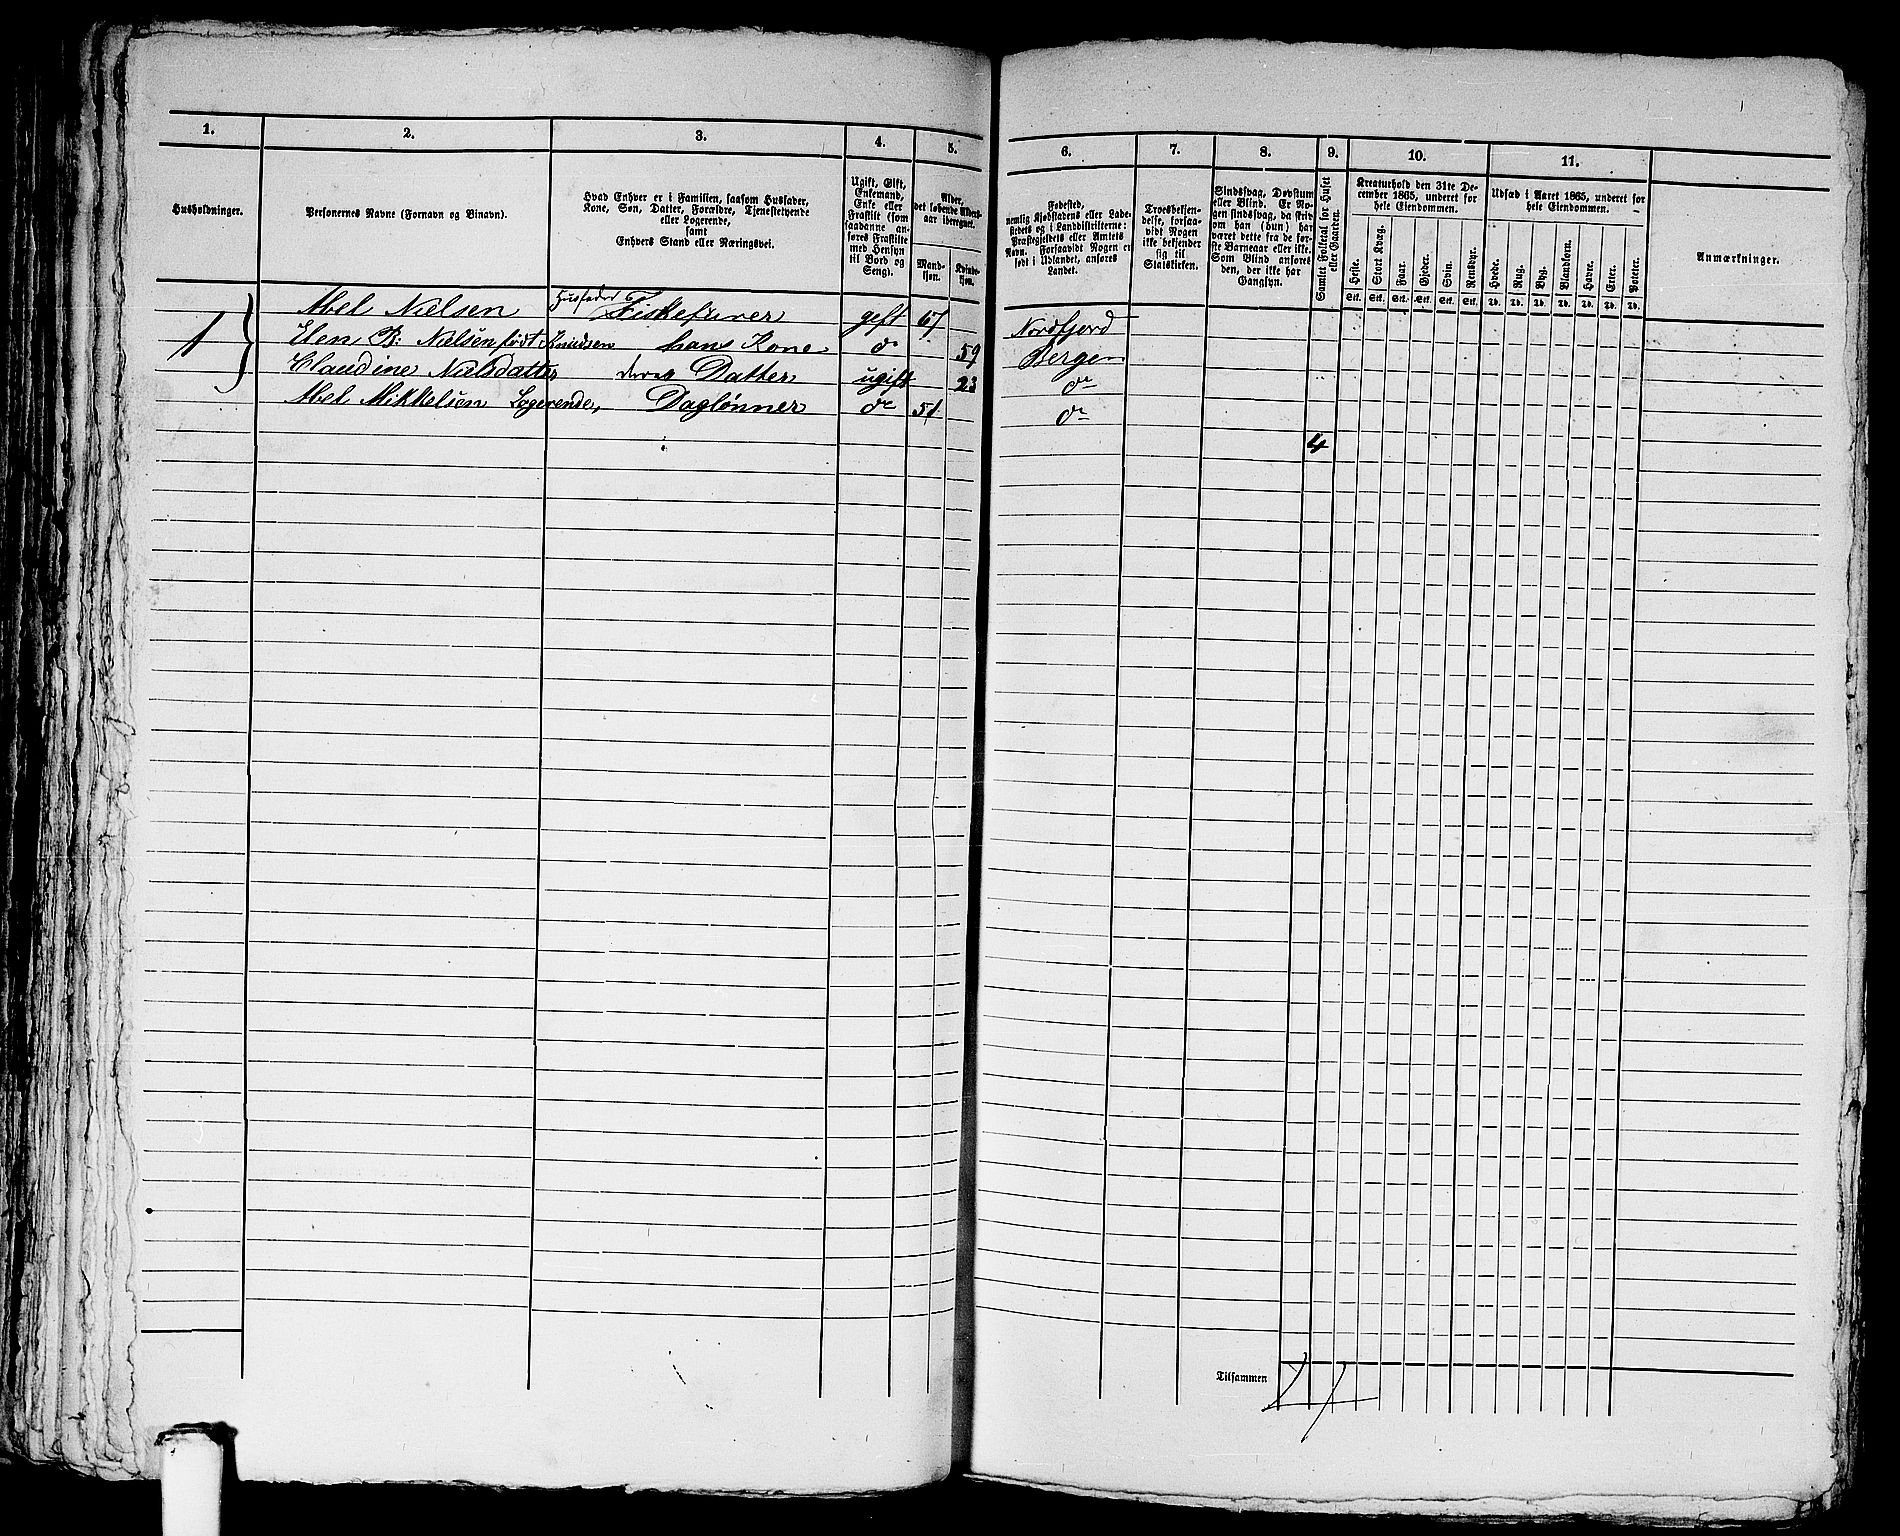 1. 2. 3. 4. 5. 6. 7. 8. 9. 10. 11.
Husholdninger.
Personernes Navne (Fornavn og Binavn).
Hvad Enhver er i Familien, saasom Husfader,
Kone, Søn, Datter, Forældre, Tjenestetyende
eller Logerende,
samt
Enhvers Stand eller Næringsvei.
Ugift, Gift,
Enkemand,
Enke eller
Fraskilt (som
saadanne an-
føres Fraskilte
med Hensyn
til Bord og
Seng).
Alder,
det løbende Alders-
aar iberegnet.
Mand-
kjøn.
Kvinde-
kjøn.
Fødested,
nemlig Kjøbstadens eller Lade-
stedets og i Landdistrikterne:
Præstegjeldets eller Amtets
Navn. Forsaavidt Nogen er
født i Udlandet, anføres
Landet.
Troesbekjen-
delse, forsaa-
vidt Nogen
ikke bekjender
sig til
Statskirken.
Sindssvag, Døvstum
eller Blind. Er No-
gen sindssvag, da skriv
om han (hun) har
været dette fra de før-
ste Barneaar eller ikke.
Som Blind anføres
den, der ikke har
Gangsyn.
Samlet Folketal for Huset
eller Gaarden.
Kreaturhold den 31te De-
cember 1865, underet for
hele Eiendommen.
Heste.
Stort Kvæg.
Faar.
Gjeder.
Svin.
Rensdyr.
Stk. Stk. Stk. Stk. Stk. Stk.
Udsæd i Aaret 1865, underet for
hele Eiendommen.
Hvede.
Rug.
Byg.
Blandkorn.
Havre.
Erter.
Poteter.
Td. Td. Td. Td. Td. Td. Td.
Anmærkninger.
1
Abel Nielsen Husfader Fiskefører gift 67 Nordfjord
Elen B: Nielsen født Knudsen hans Kone do 59 Bergen
Claudine Nielsdatter deres Datter ugift 23 do
Abel Mikkelsen Logerende, Daglønner do 51 do
4
Tilsammen